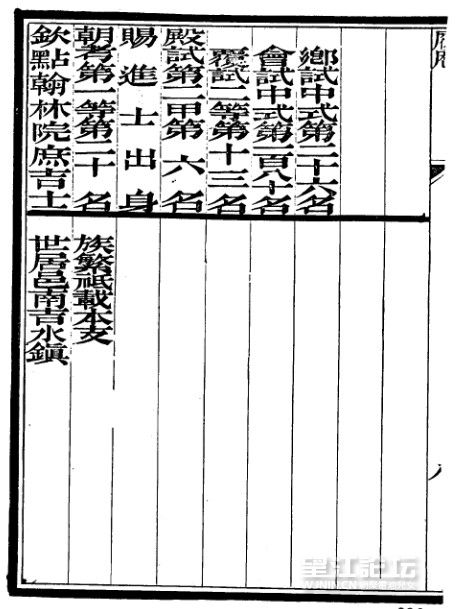 鄉試中式第二十六名
會試中式第一百八十名
覆試二等第十三名
殿試第二甲第六名
賜進士出身
朝考第一等第二十名
欽點翰林院庶吉士
族繁祗載本支
世居邑南吉水鎮
八
吴江论坛